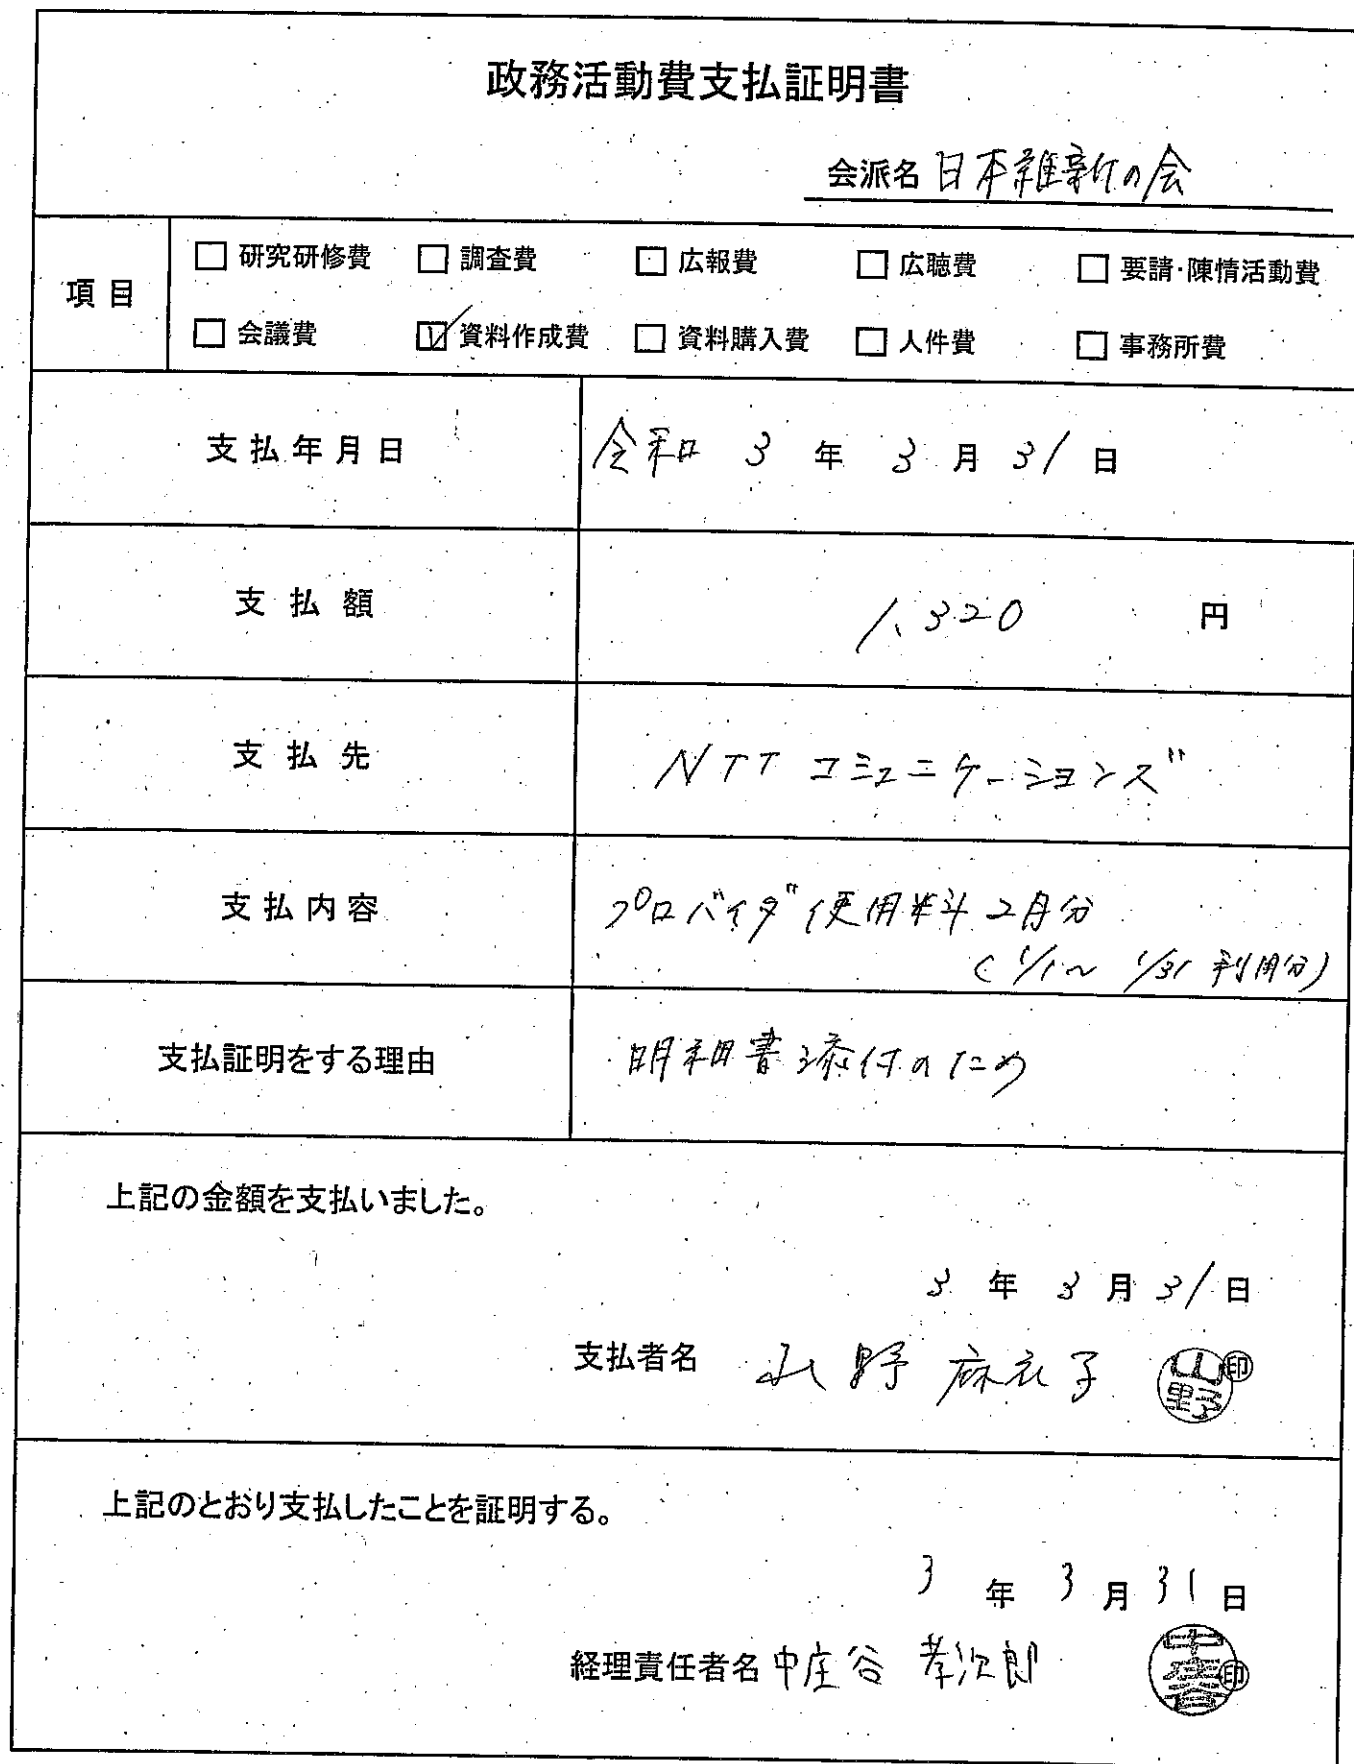 政務活動費支払証明書
会派名 日本維新の会
項目
□ 研究研修費 □ 調査費 □ 広報費 □ 広聴費 □ 要請・陳情活動費
□ 会議費 ☑ 資料作成費 □ 資料購入費 □ 人件費 □ 事務所費
支払年月日 令和 3 年 3 月 31 日
支払額 1、320 円
支払先 NTTコミュニケーションズ
支払内容 プロバイダ使用料 2月分
(1/1~ 1/31 利用分)
支払証明をする理由 明細書添付のため
上記の金額を支払いました。
3 年 3 月 31 日
支払者名 山野 麻衣子 山野 印
上記のとおり支払したことを証明する。
3 年 3 月 31 日
経理責任者名 中庄谷 孝次郎 中庄谷 印